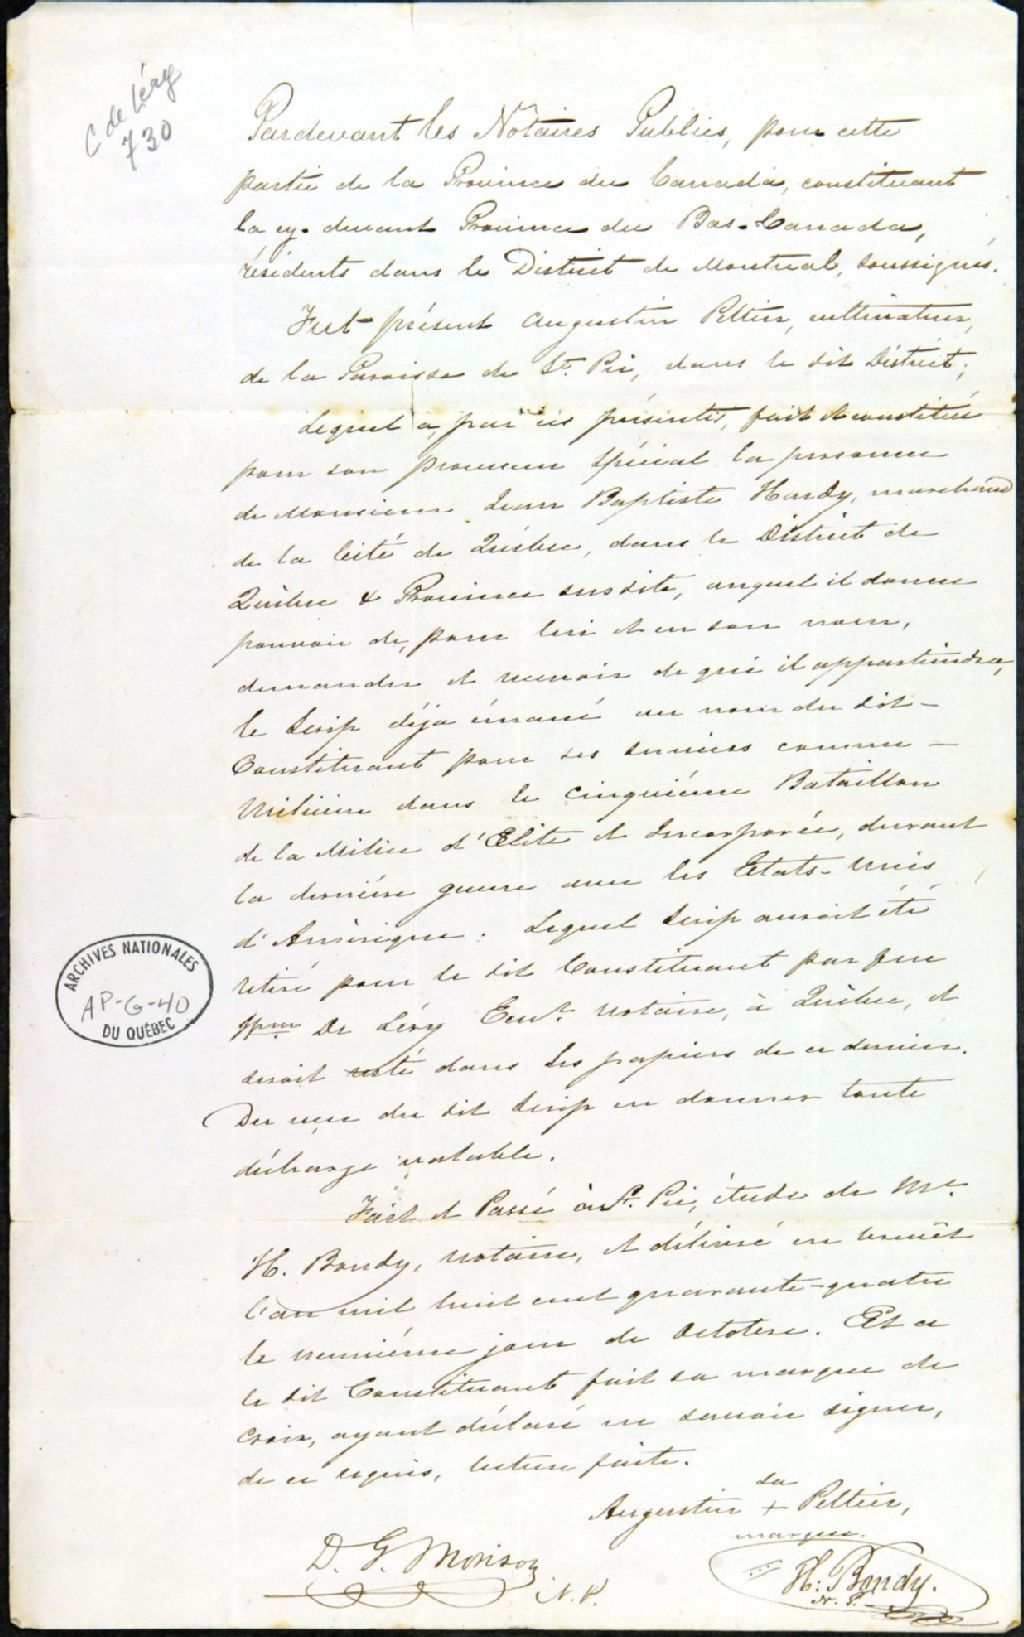 C de Léry
730
Pardevant les Notaires Publics, pour cette
partie de la Province du Canada, constituant
la cy-devant Province du Bas-Canada,
résidents dans le District de Montreal, soussignés.
Fut présent Augustin Peltier, cultivateur,
de la Paroisse de St. Pie, dans le dit District;
Lequel a, par ces présentes, fait et constitué
pour son procureur spécial la personne
de Monsieur Jean Baptiste Hardy, marchand
de la Cité de Québec, dans le District de
Québec & Province susdite, auquel il donne
pouvoir de, pour lui et en son nom,
demander et recevoir de qui il appartiendra,
le Scrip déja émané au nom du dit
Constituant pour ses services comme
Milicien dans le cinquième Bataillon
de la Milice d'Elite et Incorporée, durant
la dernière guerre avec les Etats-Unis
d'Amérique. Lequel Scrip auroit été
retiré pour le dit Constituant par feu
De Léry Ecur. Notaire, à Québec, et
seroit resté dans les papiers de ce dernier.
Du reçu du dit Scrip en donner toute
décharge valable.
Fait et Passé à St. Pie, étude de Mr.
H. Bondy, Notaire, et délivré en brevêt
l'an mil huit cent quarante-quatre
le neuvième jour de Octobre. Et a
le dit Constituant fait sa marque de
croix, ayant déclaré ne savoir signer,
de ce requis, lecture faite.
sa
Augustin + Peltier,
marque.
D. G. Morison
N. P.
H. Bondy.
N. P.
ARCHIVES NATIONALES
AP-G-40
DU QUÉBEC